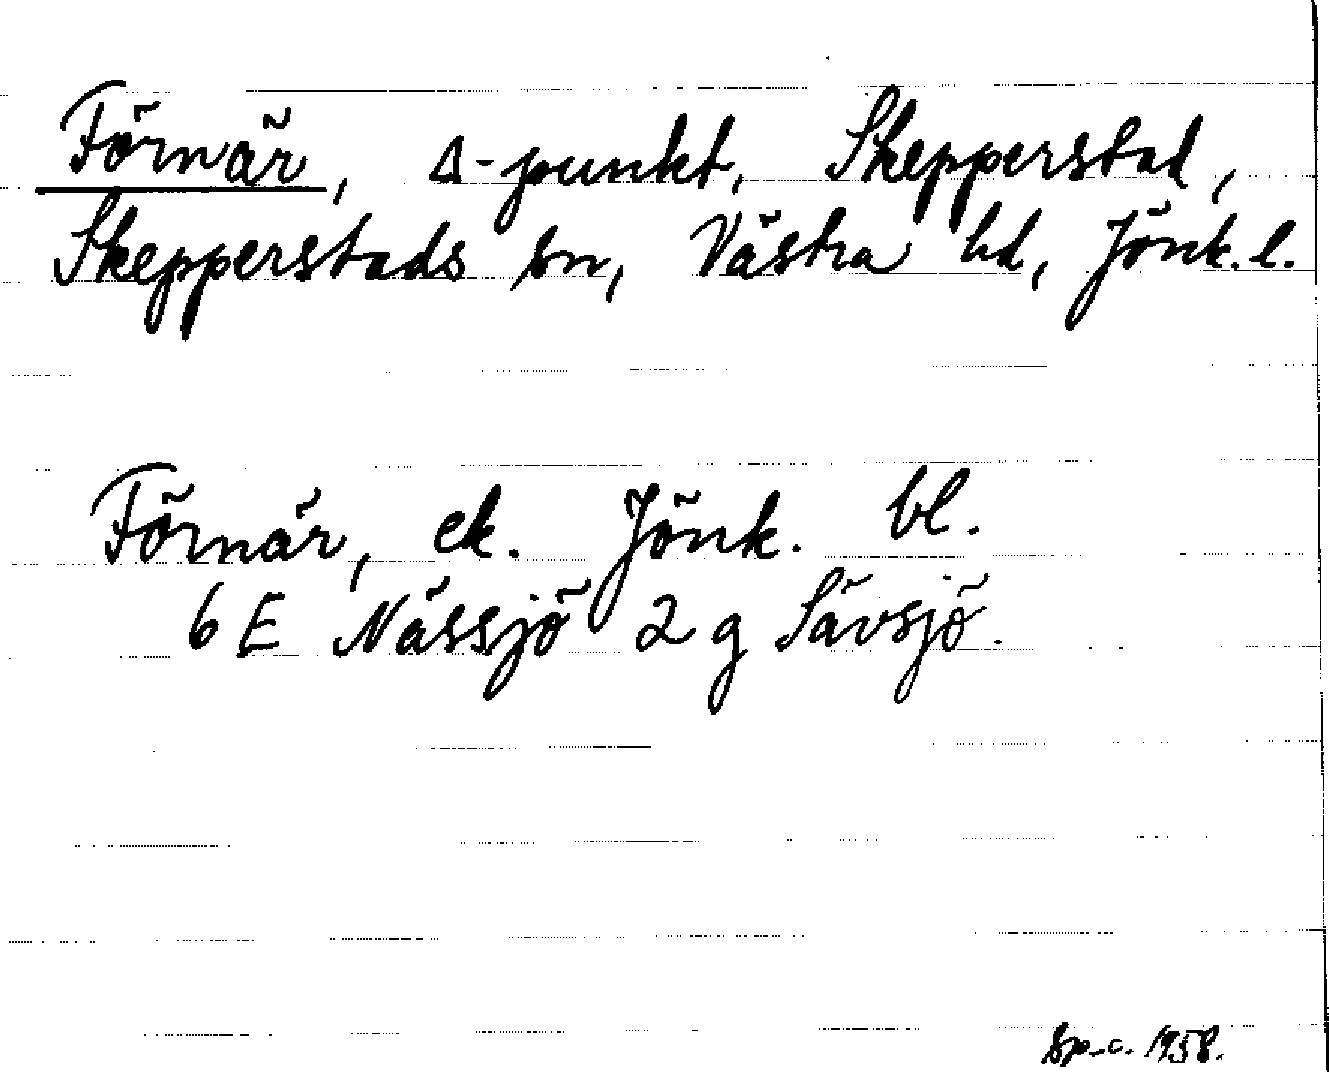 Förnär, Δ-punkt, Skepperstad,
Skepperstads sn, Västra hd, Jönk.l.
Förnär, ek. Jönk. bl.
6 E Nässjö 2 g Sävsjö.
Sp-c. 1958.